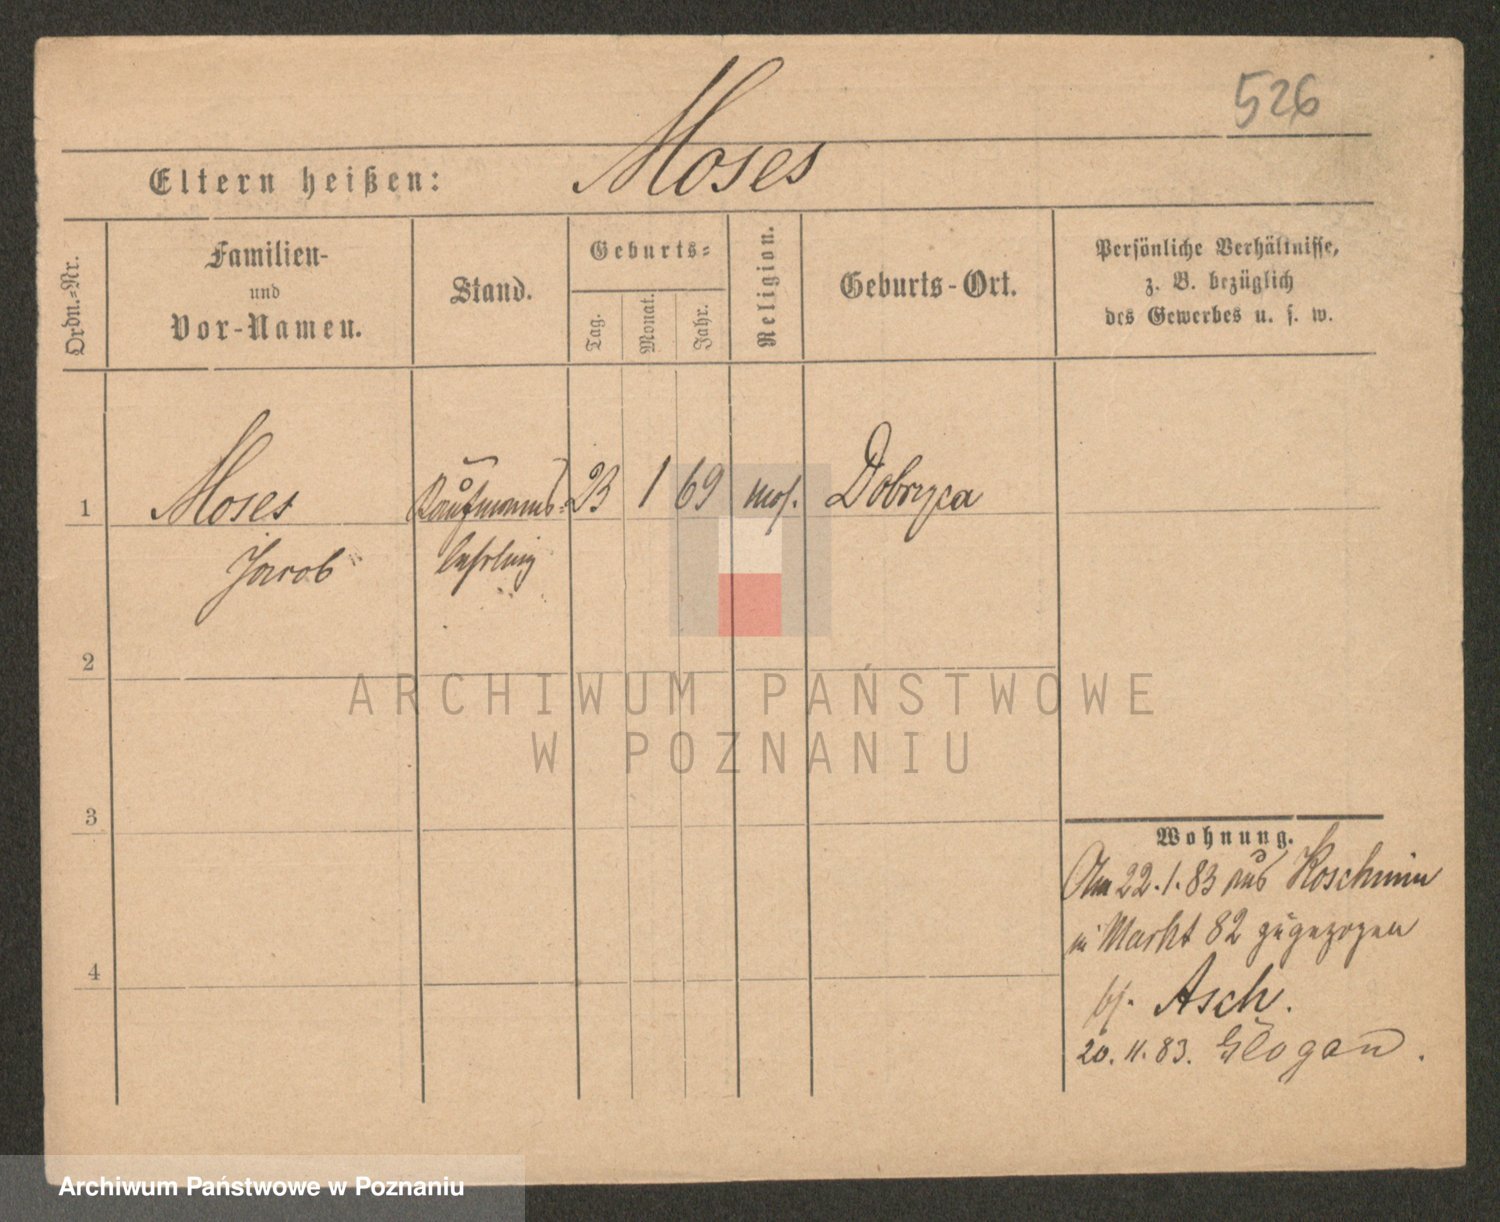 526
Moses
Eltern heißen:
Ordn.-Nr.
Familien-
und
Vor-Namen.
Stand.
Geburts-
Tag.
Monat.
Jahr.
Religion.
Geburts-Ort.
Persönliche Verhältnisse,
z. B. bezüglich
des Gewerbes u. s. w.
1 Moses Kaufmanns- 23 1 69 mos. Dobryca
Jacob lehrling
2
3
4
ARCHIWUM PAŃSTWOWE
W POZNANIU
Wohnung.
Am 22.1.83 aus Koschmin
in Markt 82 zugezogen
bj. Asch.
20.11.83. Glogau.
Archiwum Państwowe w Poznaniu